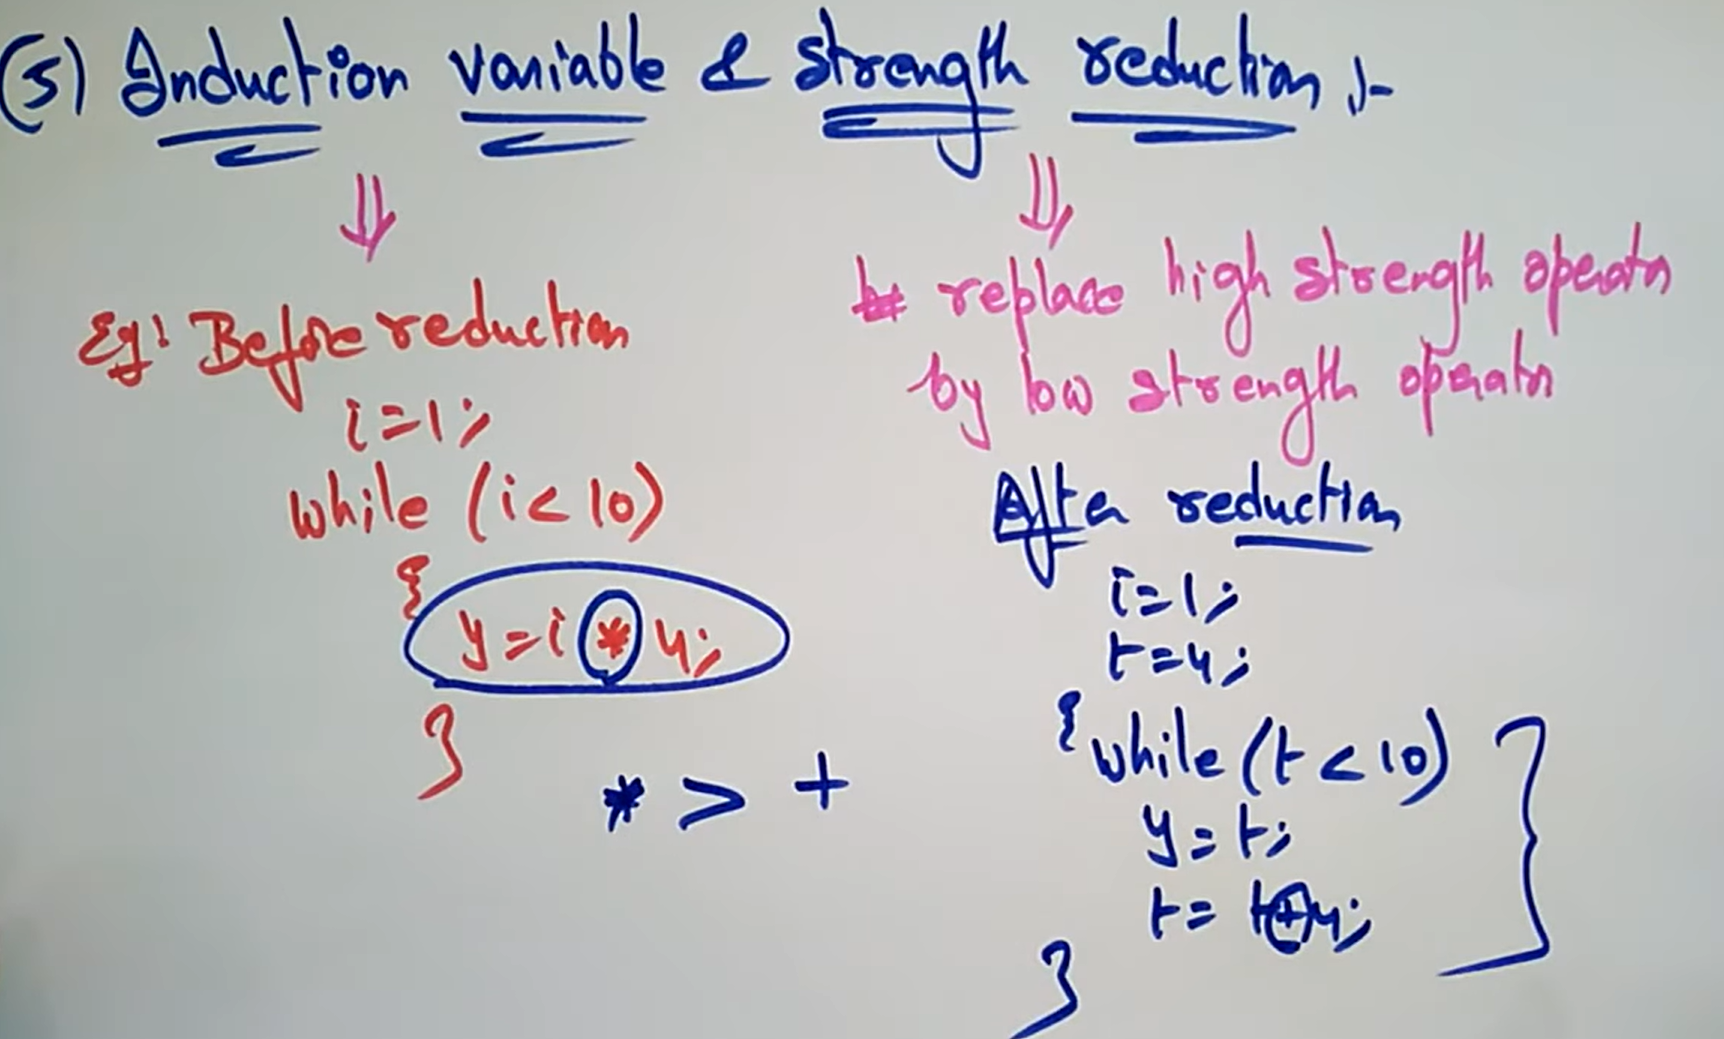 (5) Induction variable & strength reduction :-
⇓
⇓
Eg: Before reduction
i=1;
while (i<10)
{
y=i*4;
}
* > +
replace high strength operator
by low strength operator
After reduction
i=1;
t=4;
{ while (t<10)
y=t;
t=t+4;
}